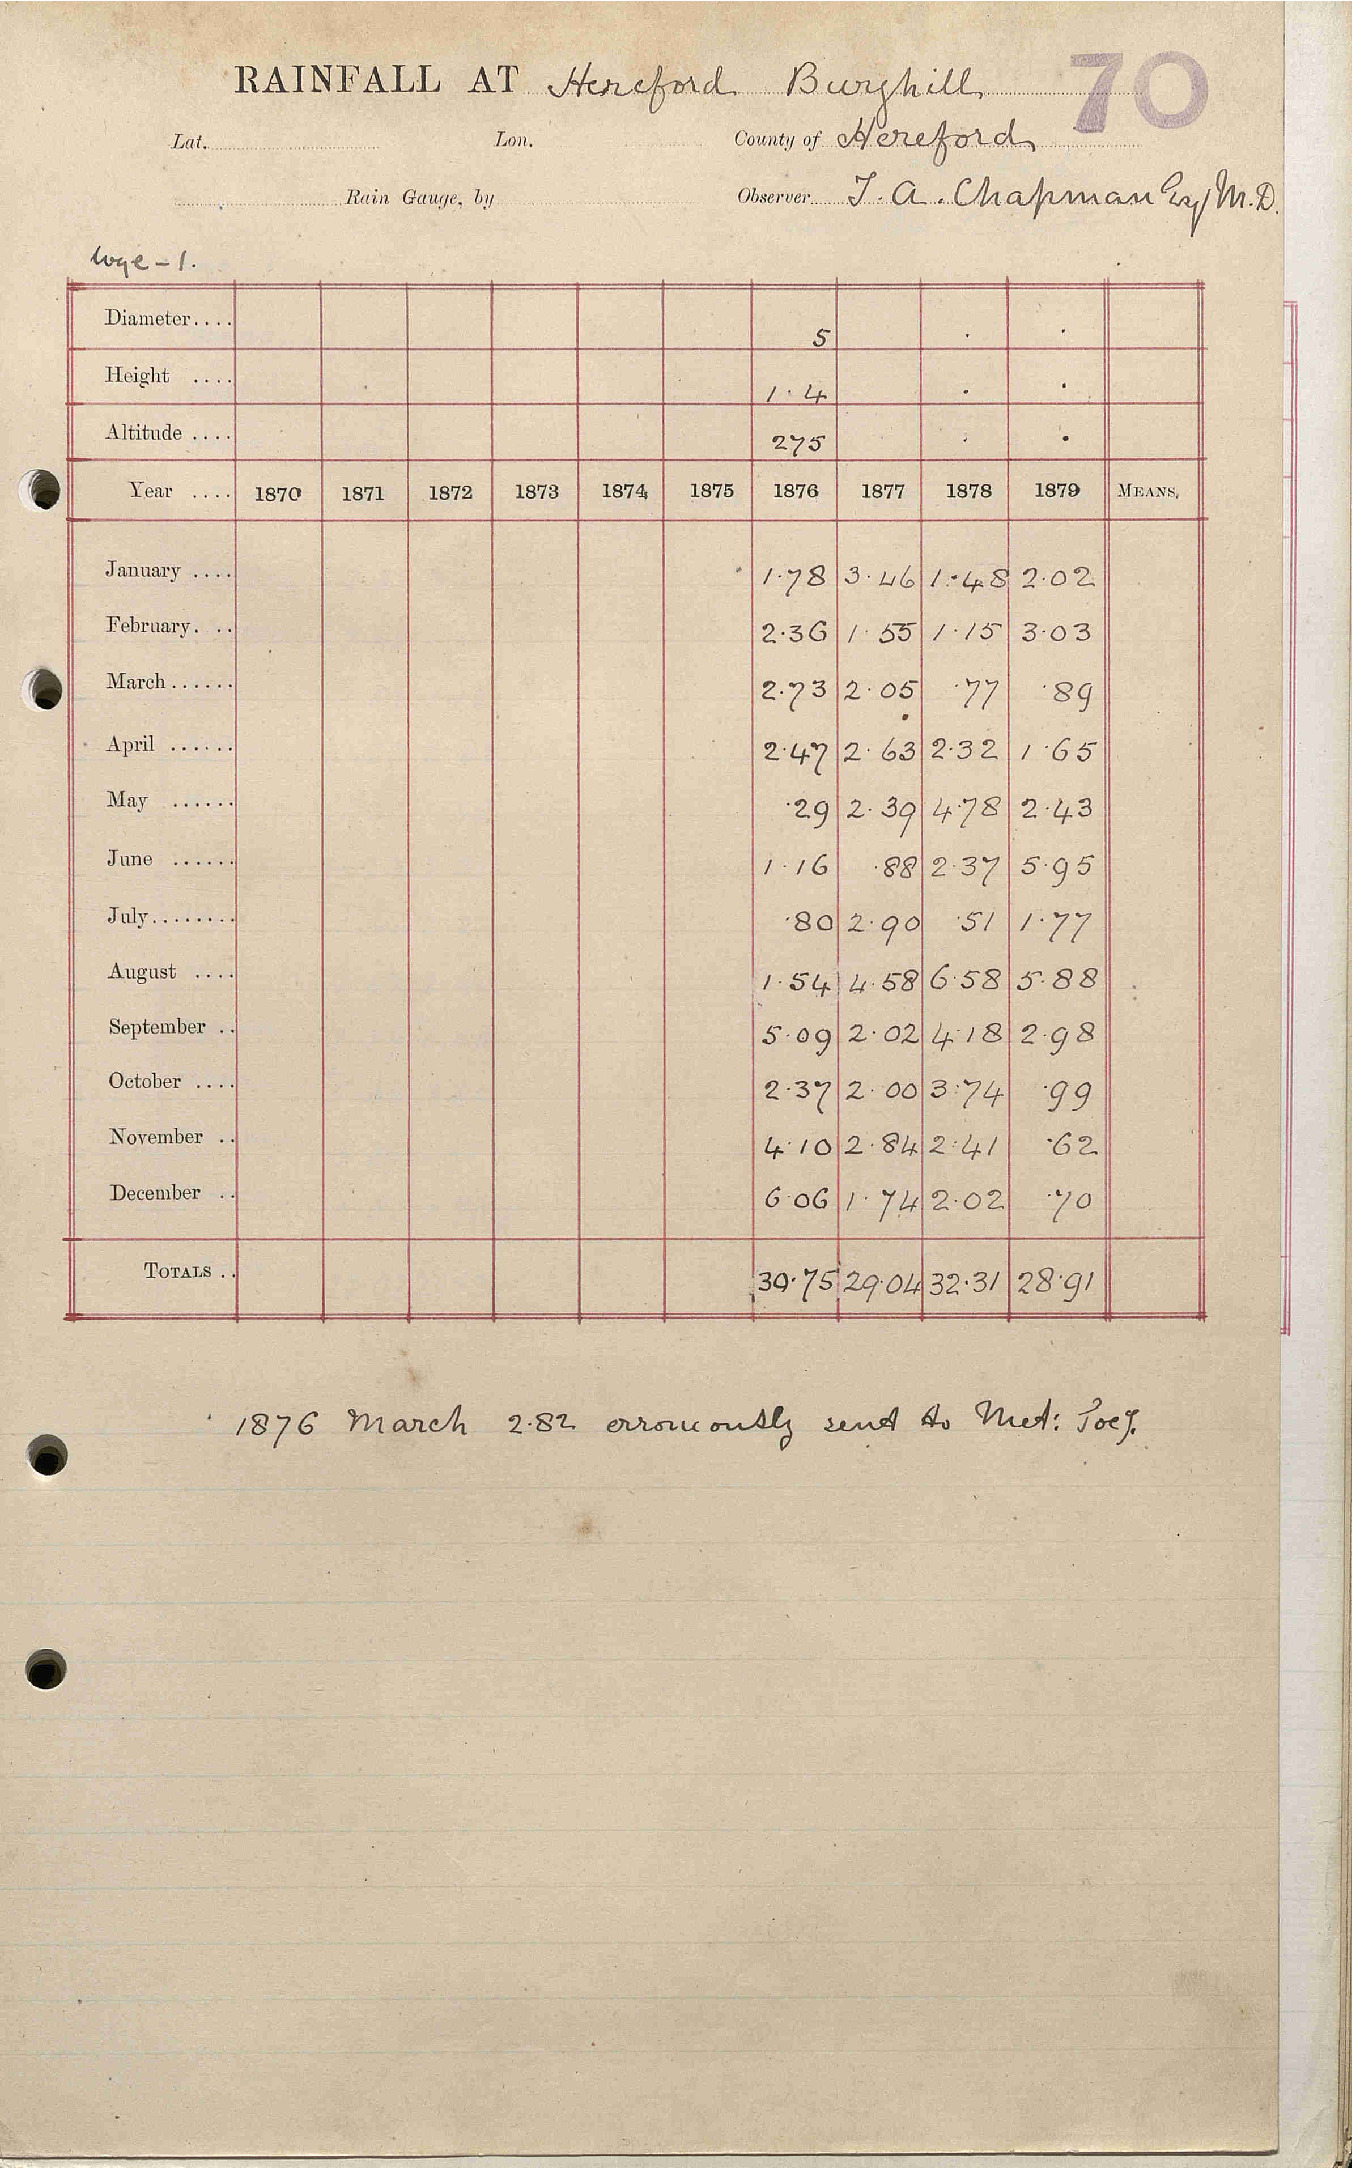 RAINFALL AT Hereford Burghill 70
Lat. Lon. County of Hereford
Rain Gauge, by Observer T. A. Chapman Esq M.D.
Wye - 1.
Diameter.... 5
Height .... 1·4
Altitude .... 275
Year .... 1870 1871 1872 1873 1874 1875 1876 1877 1878 1879 MEANS.
January .... 1·78 3·46 1·48 2·02
February. .. 2·36 1·55 1·15 3·03
March...... 2·73 2·05 ·77 ·89
April ...... 2·47 2·63 2·32 1·65
May ...... ·29 2·39 4·78 2·43
June ...... 1·16 ·88 2·37 5·95
July........ ·80 2·90 ·51 1·77
August .... 1·54 4·58 6·58 5·88
September .. 5·09 2·02 4·18 2·98
October .... 2·37 2·00 3·74 ·99
November .. 4·10 2·84 2·41 ·62
December .. 6·06 1·74 2·02 ·70
TOTALS .. 30·75 29·04 32·31 28·91
1876 March 2·82 erroneously sent to Met: Socy.